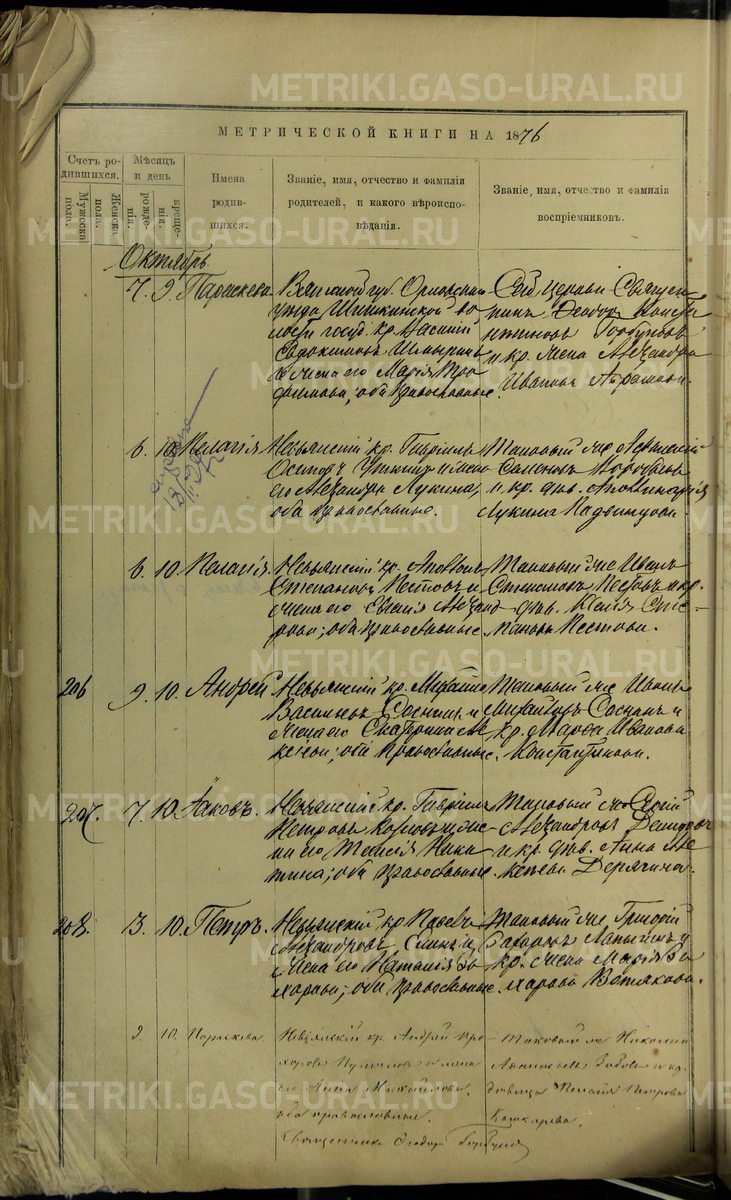 METRIKI.GASO-URAL.RU
МЕТРИЧЕСКОЙ КНИГИ НА 1876
Счетъ родившихся.
Мужеска пола.
Женска пола.
Мѣсяцъ и день
рожденія.
крещенія.
Имена родившихся.
Званіе, имя, отчество и фамилія родителей, и какого вѣроисповѣданія.
Званіе, имя, отчество и фамилія воспріемниковъ.
Октябрь
7. 9. Параскева.
Вятской губ. Орловскаго
уѣзда Шишкинской во-
лости госуд. кр. Василій
Евдокимовъ и
жена его Марія Тро-
фимова; оба православные.
Сей церкви Священ-
никъ Ѳеодоръ Конста
нтиновъ Горбуновъ
и кр. жена Александра
Иванова
6. 10. Пелагія
Невьянскій кр. Гавріилъ
Осиповъ и жена
его Александра Лукина,
оба православные.
Таковый же Аѳанасій
Семеновъ
и кр. дѣв. Аполлинарія
Лукина
6. 10. Пелагія.
Невьянскій кр.
Степановъ Пестовъ и
жена его Евгенія Александ
рова; оба православные.
Таковый же Иванъ
Степановъ Пестовъ и кр.
дѣв. Сте-
панова Пестова.
206 9. 10. Андрей
Невьянскій кр. Михаилъ
Васильевъ Соснинъ и
жена его Екатерина Ал
ексѣева; оба православные.
Таковый же
Михайловъ Соснинъ и
кр. Марѳа Иванова
Константинова.
207. 7. 10. Іаковъ.
Невьянскій кр. Гавріилъ
Петровъ и же-
на его Ники
тина; оба православные.
Таковый же Сергій
Александровъ Демидовъ
и кр. дѣв. Анна Але
ксѣева Дерягина.
208. 3. 10. Петръ.
Невьянскій кр. Павелъ
Александровъ и
жена его Наталія За
харова; оба православные.
Таковый же Григорій
Захаровъ и
кр. жена Марія За
харова Вотякова.
2. 10. Параскева.
Невьянскій кр. Андрей Про-
хоровъ и жена
его Анна Михайлова,
оба православные.
Таковый же Николай
Зобовъ и кр.
вдовица Пелагія Петрова
Кашкарева.
Священникъ Ѳеодоръ Горбуновъ